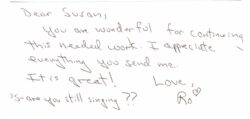 Dear Susan,
you are wonderful for continuing
this needed work. I appreciate
everything you send me.
It is great! Love,
PS-are you still singing?? Ro♡